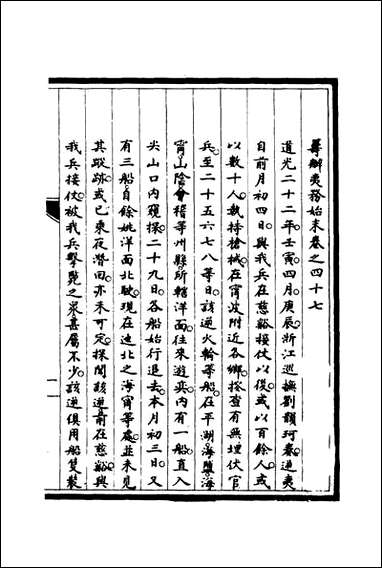 籌辦夷務始末卷之四十七
道光二十二年壬寅四月庚辰浙江巡撫劉韻珂奏逆夷
自前月初四日與我兵在慈谿接仗以後或以百餘人或
以數十人執持槍械在甯波附近各鄉搭查有無埋伏官
兵至二十五六七八等日該逆火輪等船在平湖海鹽海
甯山陰會稽等州縣所轄洋面往來遊奕內有一船直入
尖山口內窺探二十九日各船始行退去本月初三日又
有三船自餘姚洋面北駛現在迤北之海甯等處並未見
其蹤跡或已乘夜潛回亦未可定探聞該逆前在慈谿與
我兵接仗被我兵擊斃之眾甚屬不少該逆俱用船隻裝